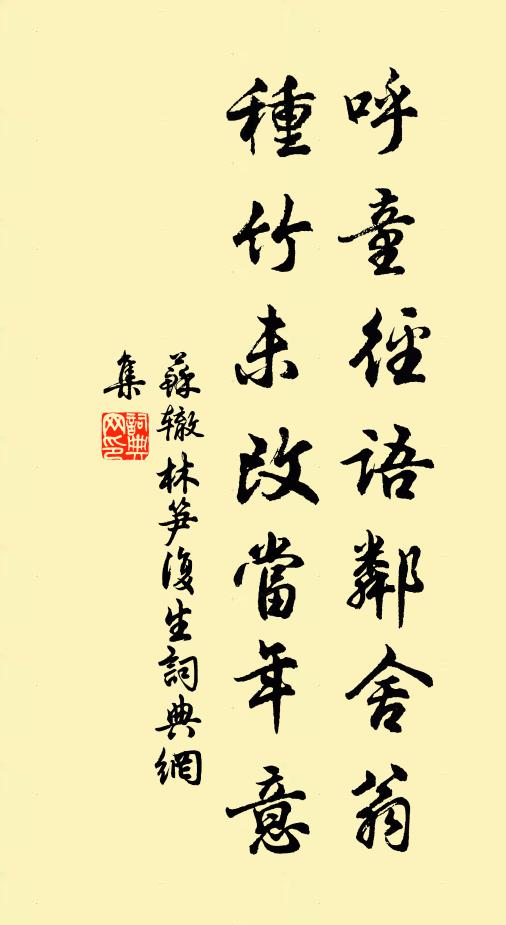 呼童徑語鄰舍翁
種竹未改當年意
蘇轍林笋復生詞典網
集
詞典
网印